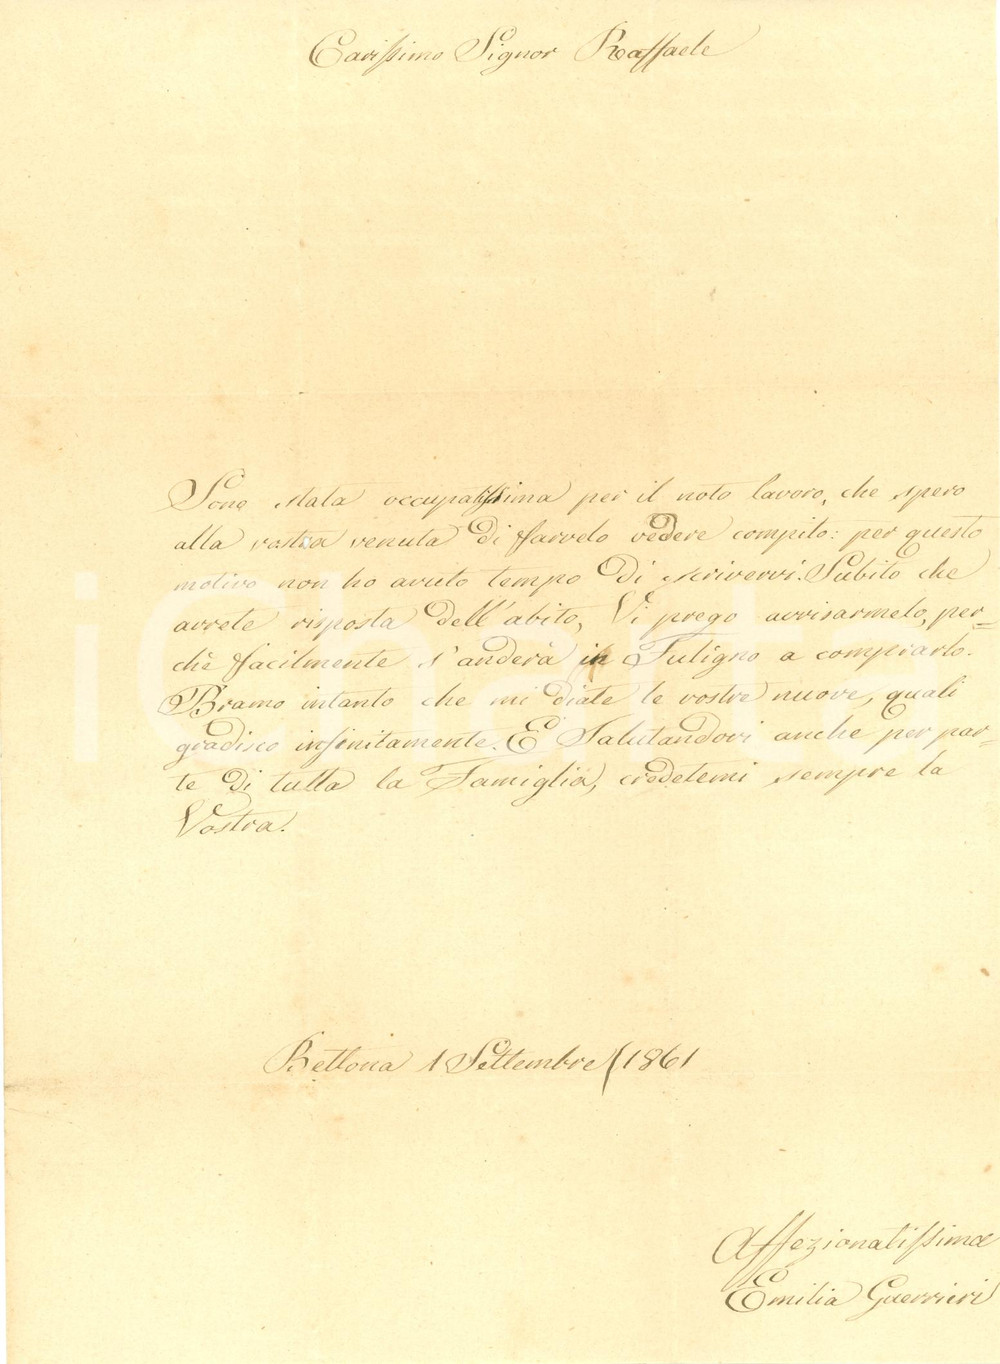 Carissimo Signor Raffaele
Sono stata occupatissima per il noto lavoro, che spero
alla vostra venuta di farvelo vedere compito: per questo
motivo non ho avuto tempo di scrivervi. Subito che
avrete risposta dell'abito, Vi prego avvisarmelo, per=
chè facilmente s'anderà in Fuligno a comprarlo.
Bramo intanto che mi diate le vostre nuove, quali
gradisco infinitamente. E Salutandovi anche per par=
te di tutta la Famiglia, credetemi sempre la
Vostra.
Bettona 1 Settembre/1861
Affezionatissima
Emilia Guerrieri